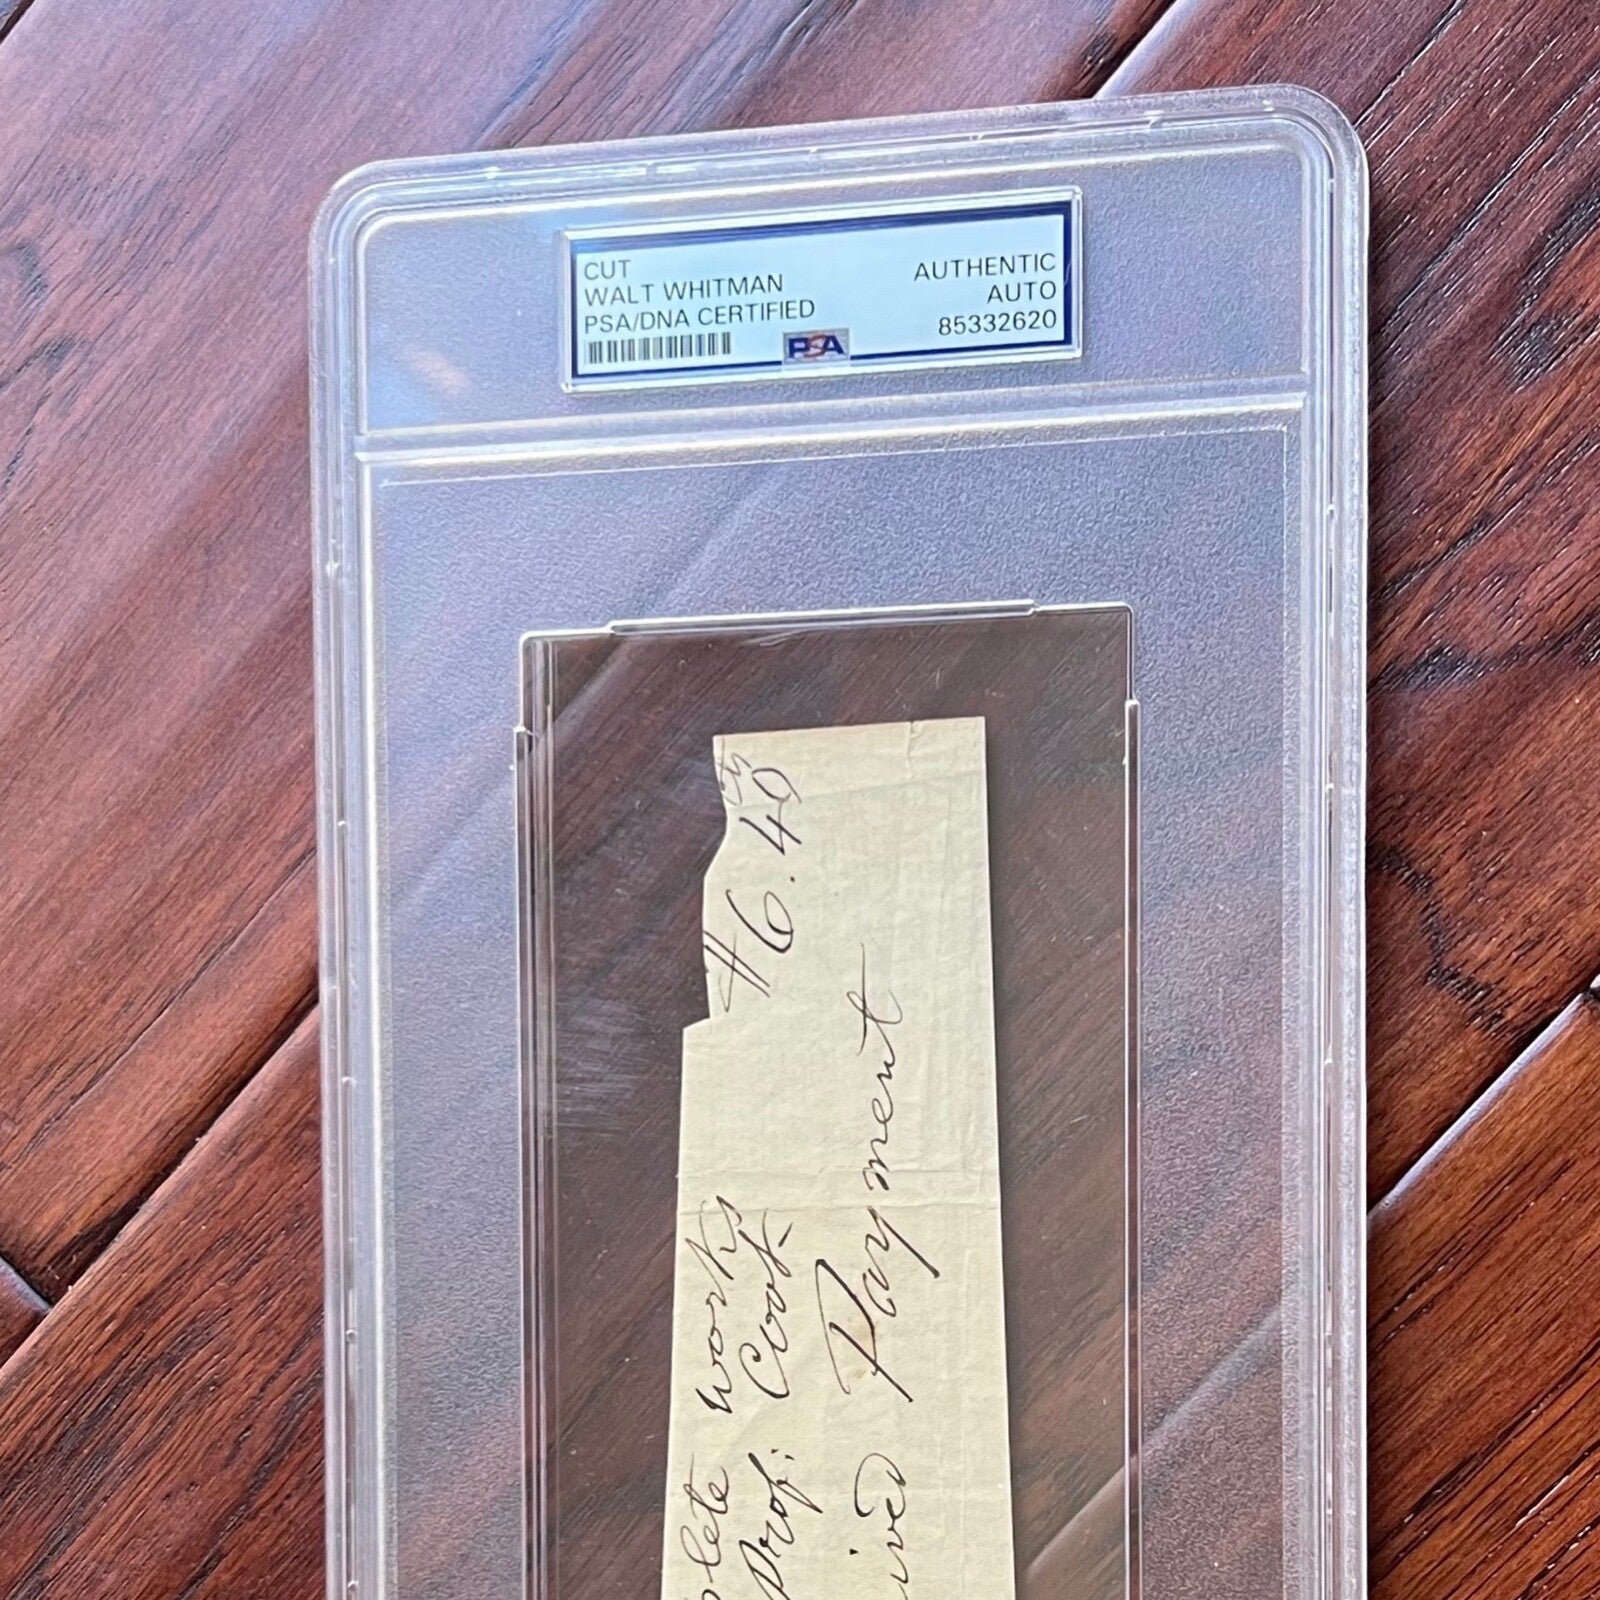 CUT
WALT WHITMAN
PSA/DNA CERTIFIED
AUTHENTIC
AUTO
85332620
PSA
plete works
$6.40
Prof: Cook
ived Payment